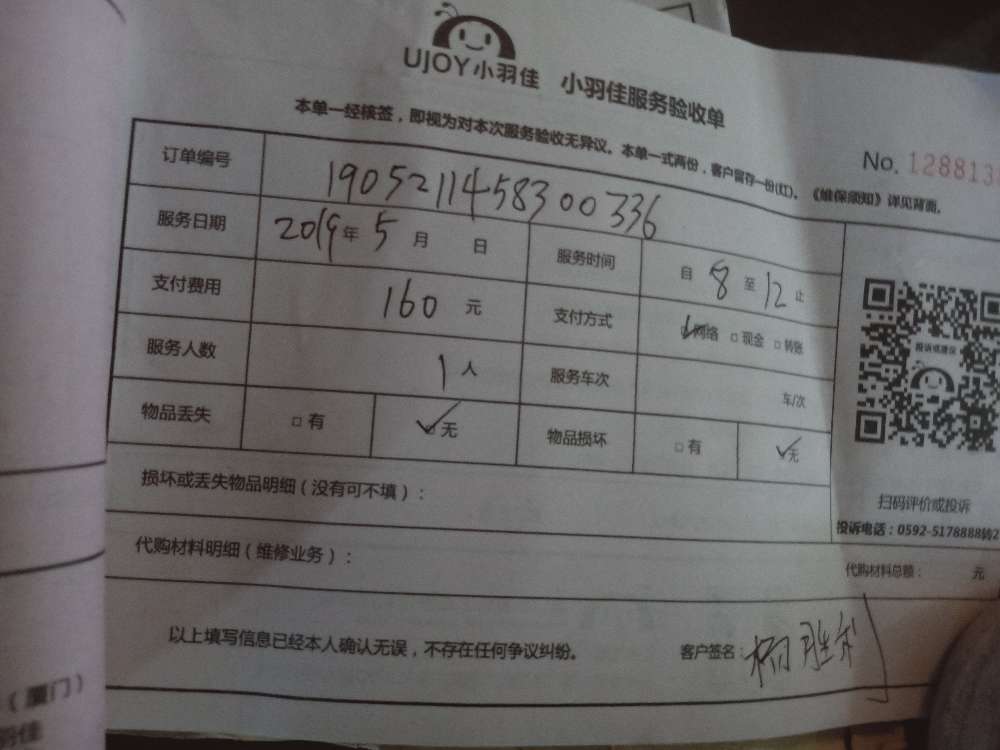 UJOY小羽佳 小羽佳服务验收单
本单一经核签，即视为对本次服务验收无异议。本单一式两份，客户留存一份(红)。《维保须知》详见背面。
No. 128813
订单编号 1905211458300336
服务日期 2019年 5 月 日 服务时间 自 8 至 12 止
支付费用 160 元 支付方式 网络 □ 现金 □ 转账
投诉或建议
服务人数 1 人 服务车次 车/次
物品丢失 □ 有 ✓无 物品损坏 □ 有 ✓无
损坏或丢失物品明细（没有可不填）：
扫码评价或投诉
投诉电话：0592-5178888转2
代购材料明细（维修业务）： 代购材料总额： 元
以上填写信息已经本人确认无误，不存在任何争议纠纷。 客户签名：杨胜利
（厦门）
羽佳